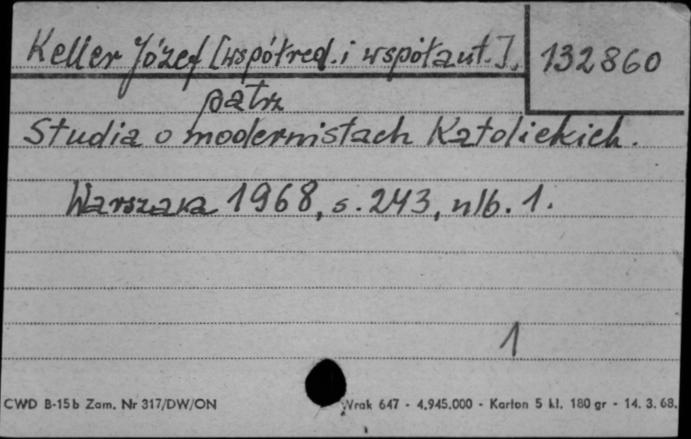 Keller Józef [współred. i współaut.]. 132860
patrz
Studia o modernistach Katolickich.
Warszawa 1968, s. 243, nlb. 1.
1
CWD B-15b Zam. Nr 317/DW/ON Wrak 647 - 4.945.000 - Karton 5 kl. 180 gr - 14. 3. 68.